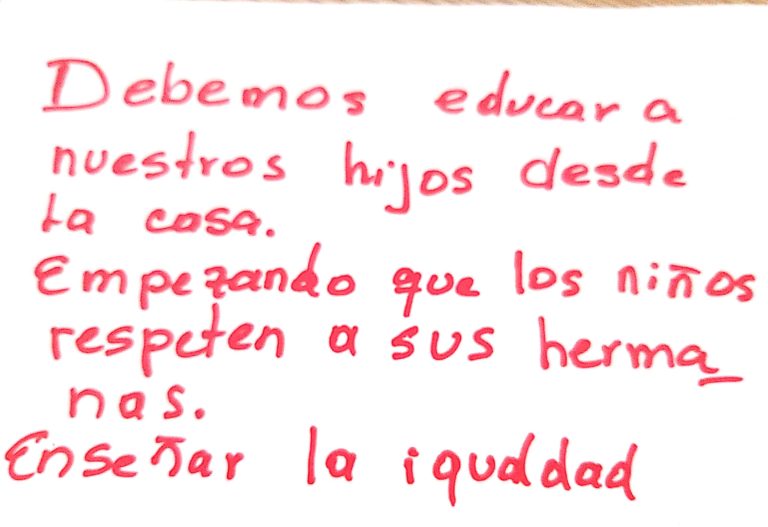 Debemos educar a
nuestros hijos desde
La casa.
Empezando que los niños
respeten a sus herma_
nas.
Enseñar la igualdad